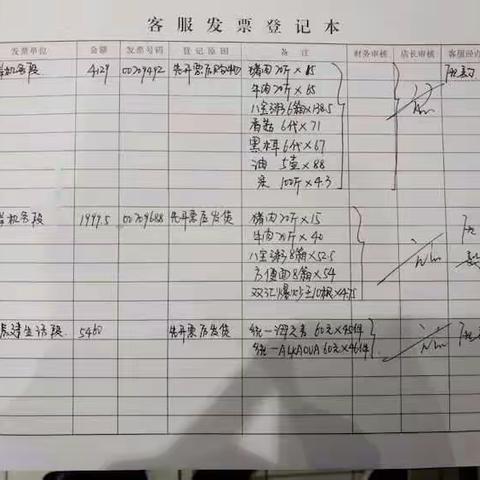 客服发票登记本
发票单位 金额 发票号码 登记原因 备注 财务审核 店长审核 客服经办
机务段 4129 00709492 先开票后购物 猪肉20斤×15
牛肉20斤×65
八宝粥6箱×138.5
香菇 6代×71
黑木耳 6代×67
油 5壶×88
米 100斤×4.3
机务段 1999.5 00709688 先开票后发货 猪肉20斤×15
牛肉20斤×40
八宝粥8箱×52.5
方便面8箱×54
双汇爆炒王10根×4.75
生活段 5460 先开票后发货 统一海之言 60元×45件
统一ALKAQUA 60元×46件